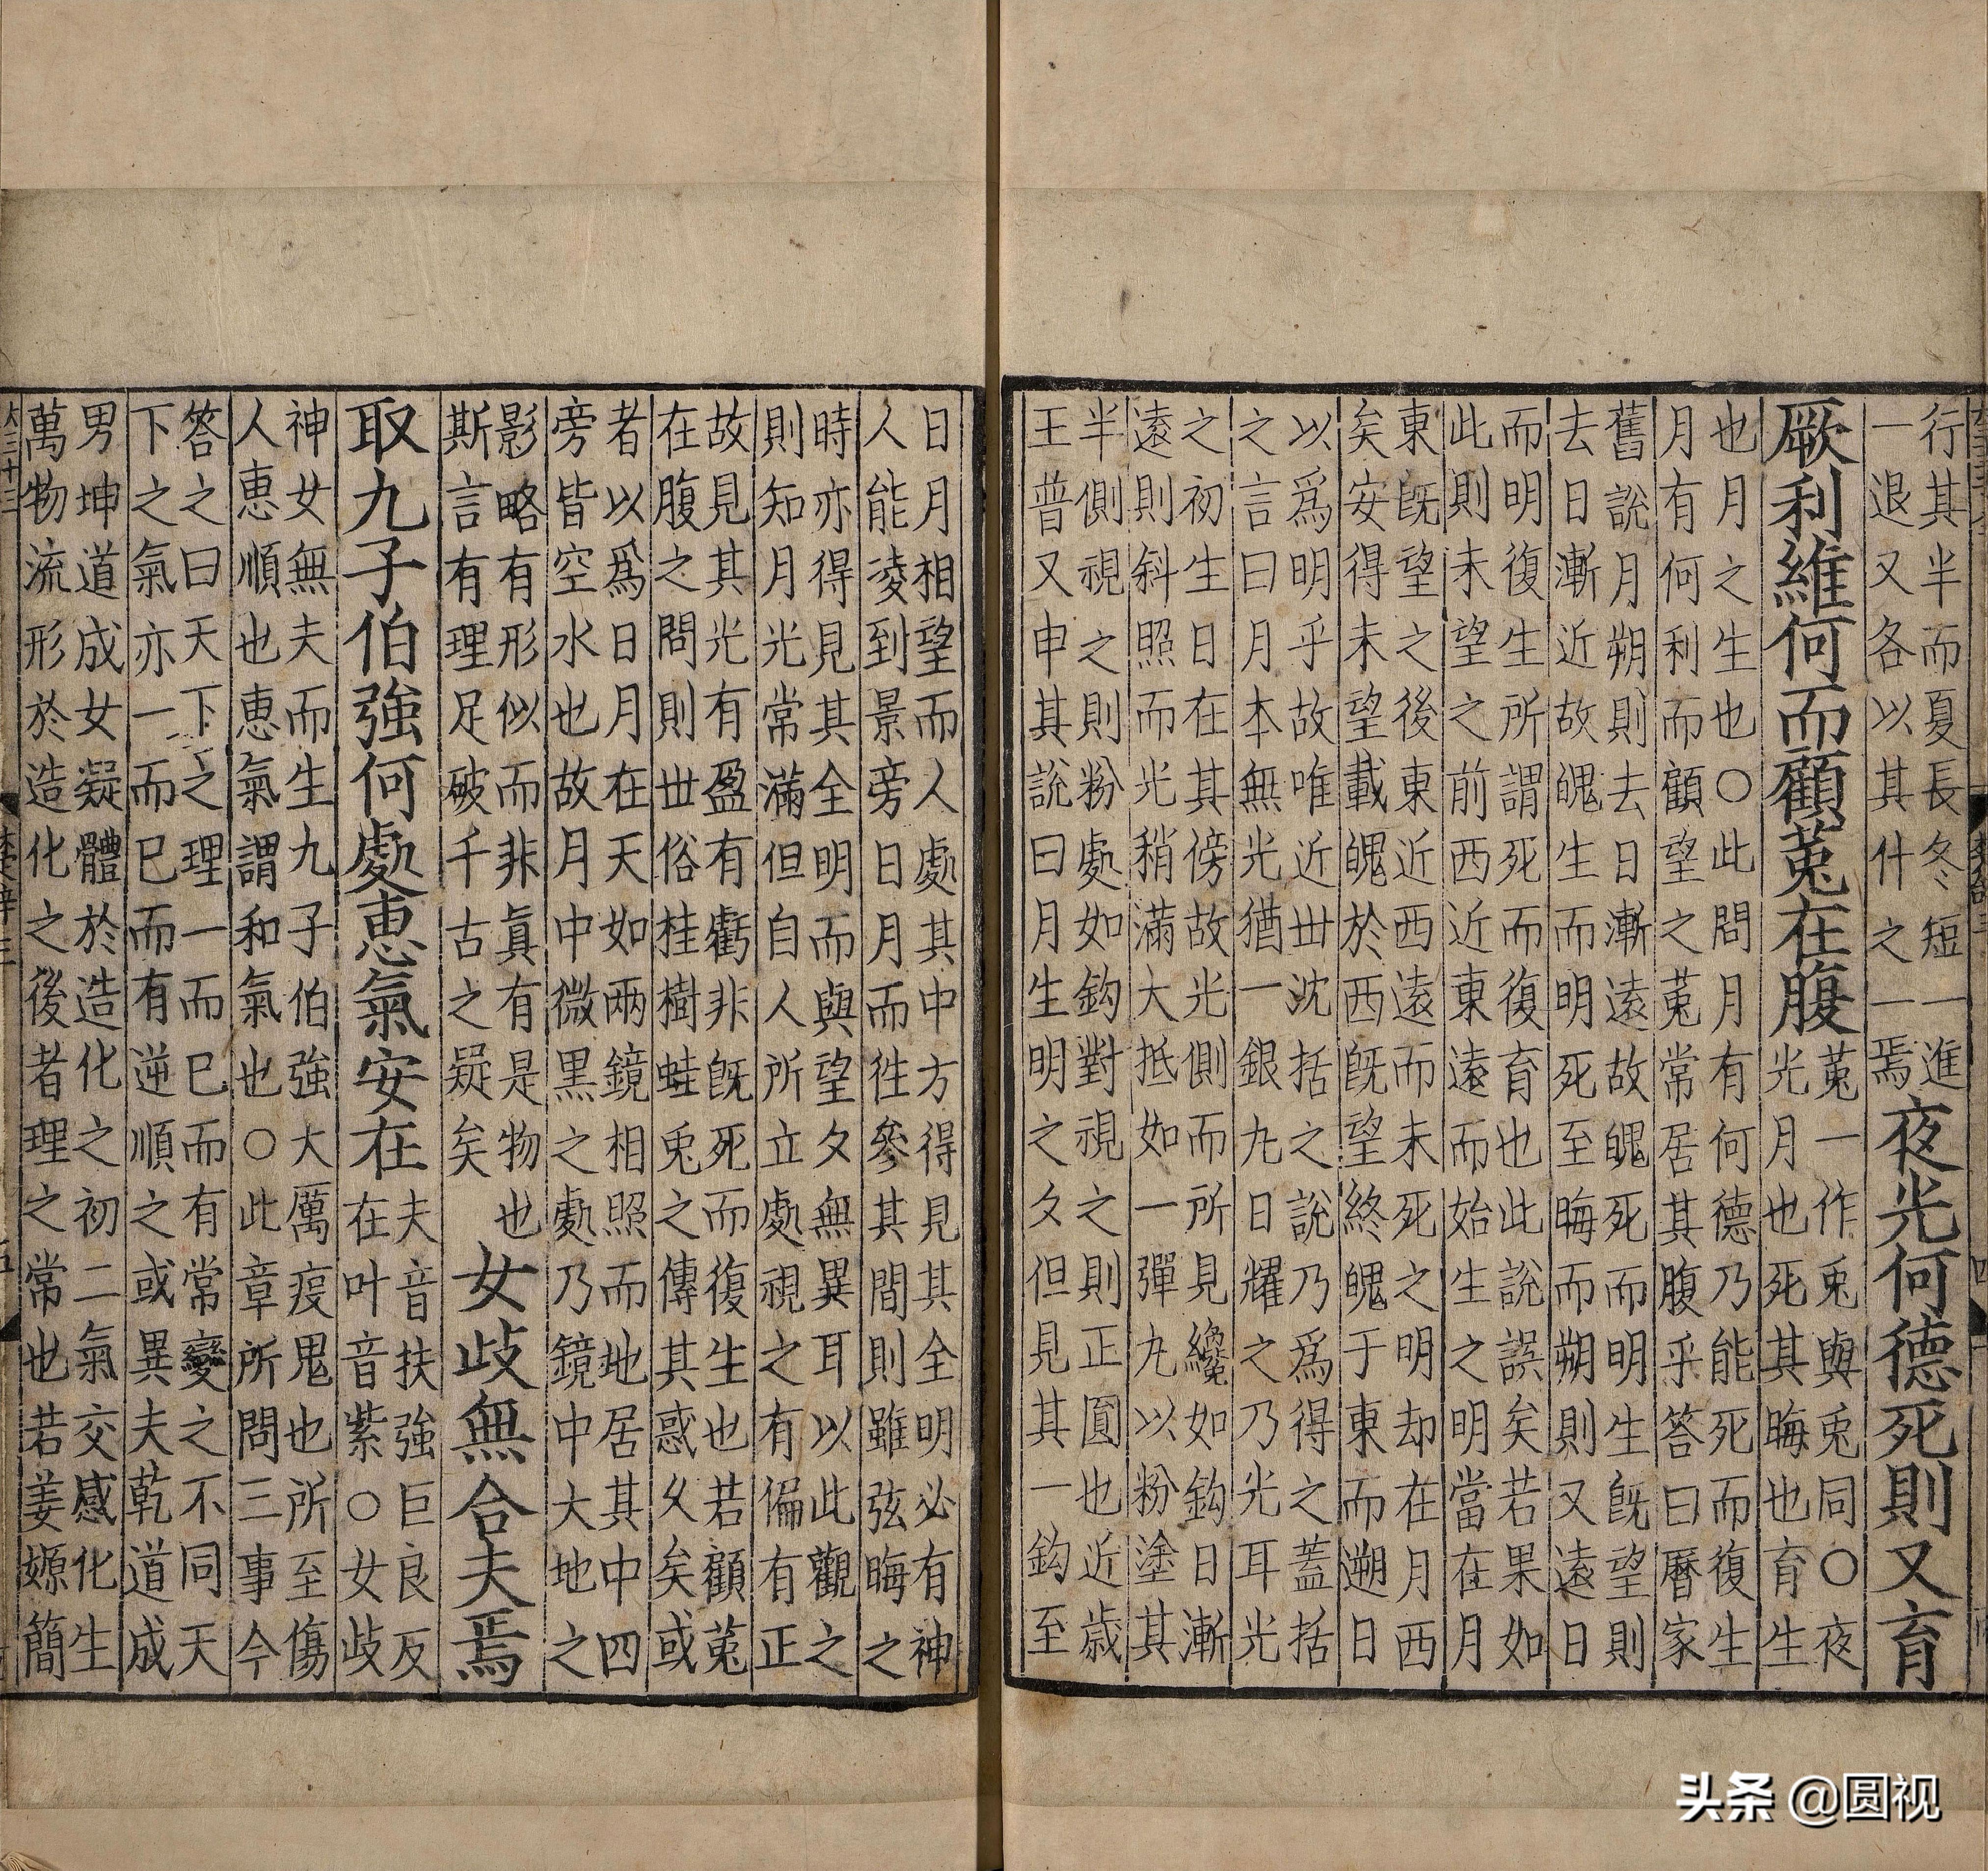 行其半而夏長冬短一進
一退又各以其什之一焉
夜光何德死則又育
厥利維何而顧菟在腹
菟一作兎與兎同〇夜
光月也死其晦也育生
也月之生也〇此問月有何德乃能死而復生
月有何利而顧望之菟常居其腹乎答曰曆家
舊說月朔則去日漸遠故魄死而明生既望則
去日漸近故魄生而明死至晦而朔則又遠日
而明復生所謂死而復育也此說誤矣若果如
此則未望之前西近東遠而始生之明當在月
東既望之後東近西遠而未死之明却在月西
矣安得未望載魄於西既望終魄于東而遡日
以爲明乎故唯近丗沈括之說乃爲得之蓋括
之言曰月本無光猶一銀丸日耀之乃光耳光
之初生日在其傍故光側而所見纔如鈎日漸
遠則斜照而光稍滿大抵如一彈丸以粉塗其
半側視之則粉處如鈎對視之則正圓也近歲
王普又申其說曰月生明之夕但見其一鈎至
日月相望而人處其中方得見其全明必有神
人能凌到景旁日月而往參其間則雖弦晦之
時亦得見其全明而與望夕無異耳以此觀之
則知月光常滿但自人所立處視之有偏有正
故見其光有盈有虧非既死而復生也若顧菟
在腹之問則丗俗桂樹蛙兎之傳其惑久矣或
者以爲日月在天如兩鏡相照而地居其中四
旁皆空水也故月中微黑之處乃鏡中大地之
影略有形似而非眞有是物也
斯言有理足破千古之疑矣
女歧無合夫焉
取九子伯強何處惠氣安在
夫音扶強巨良反
在叶音紫〇女歧
神女無夫而生九子伯強大厲疫鬼也所至傷
人惠順也惠氣謂和氣也〇此章所問三事今
答之曰天下之理一而已而有常變之不同天
下之氣亦一而已而有逆順之或異夫乾道成
男坤道成女凝體於造化之初二氣交感化生
萬物流形於造化之後者理之常也若姜嫄簡
头条 @圆视